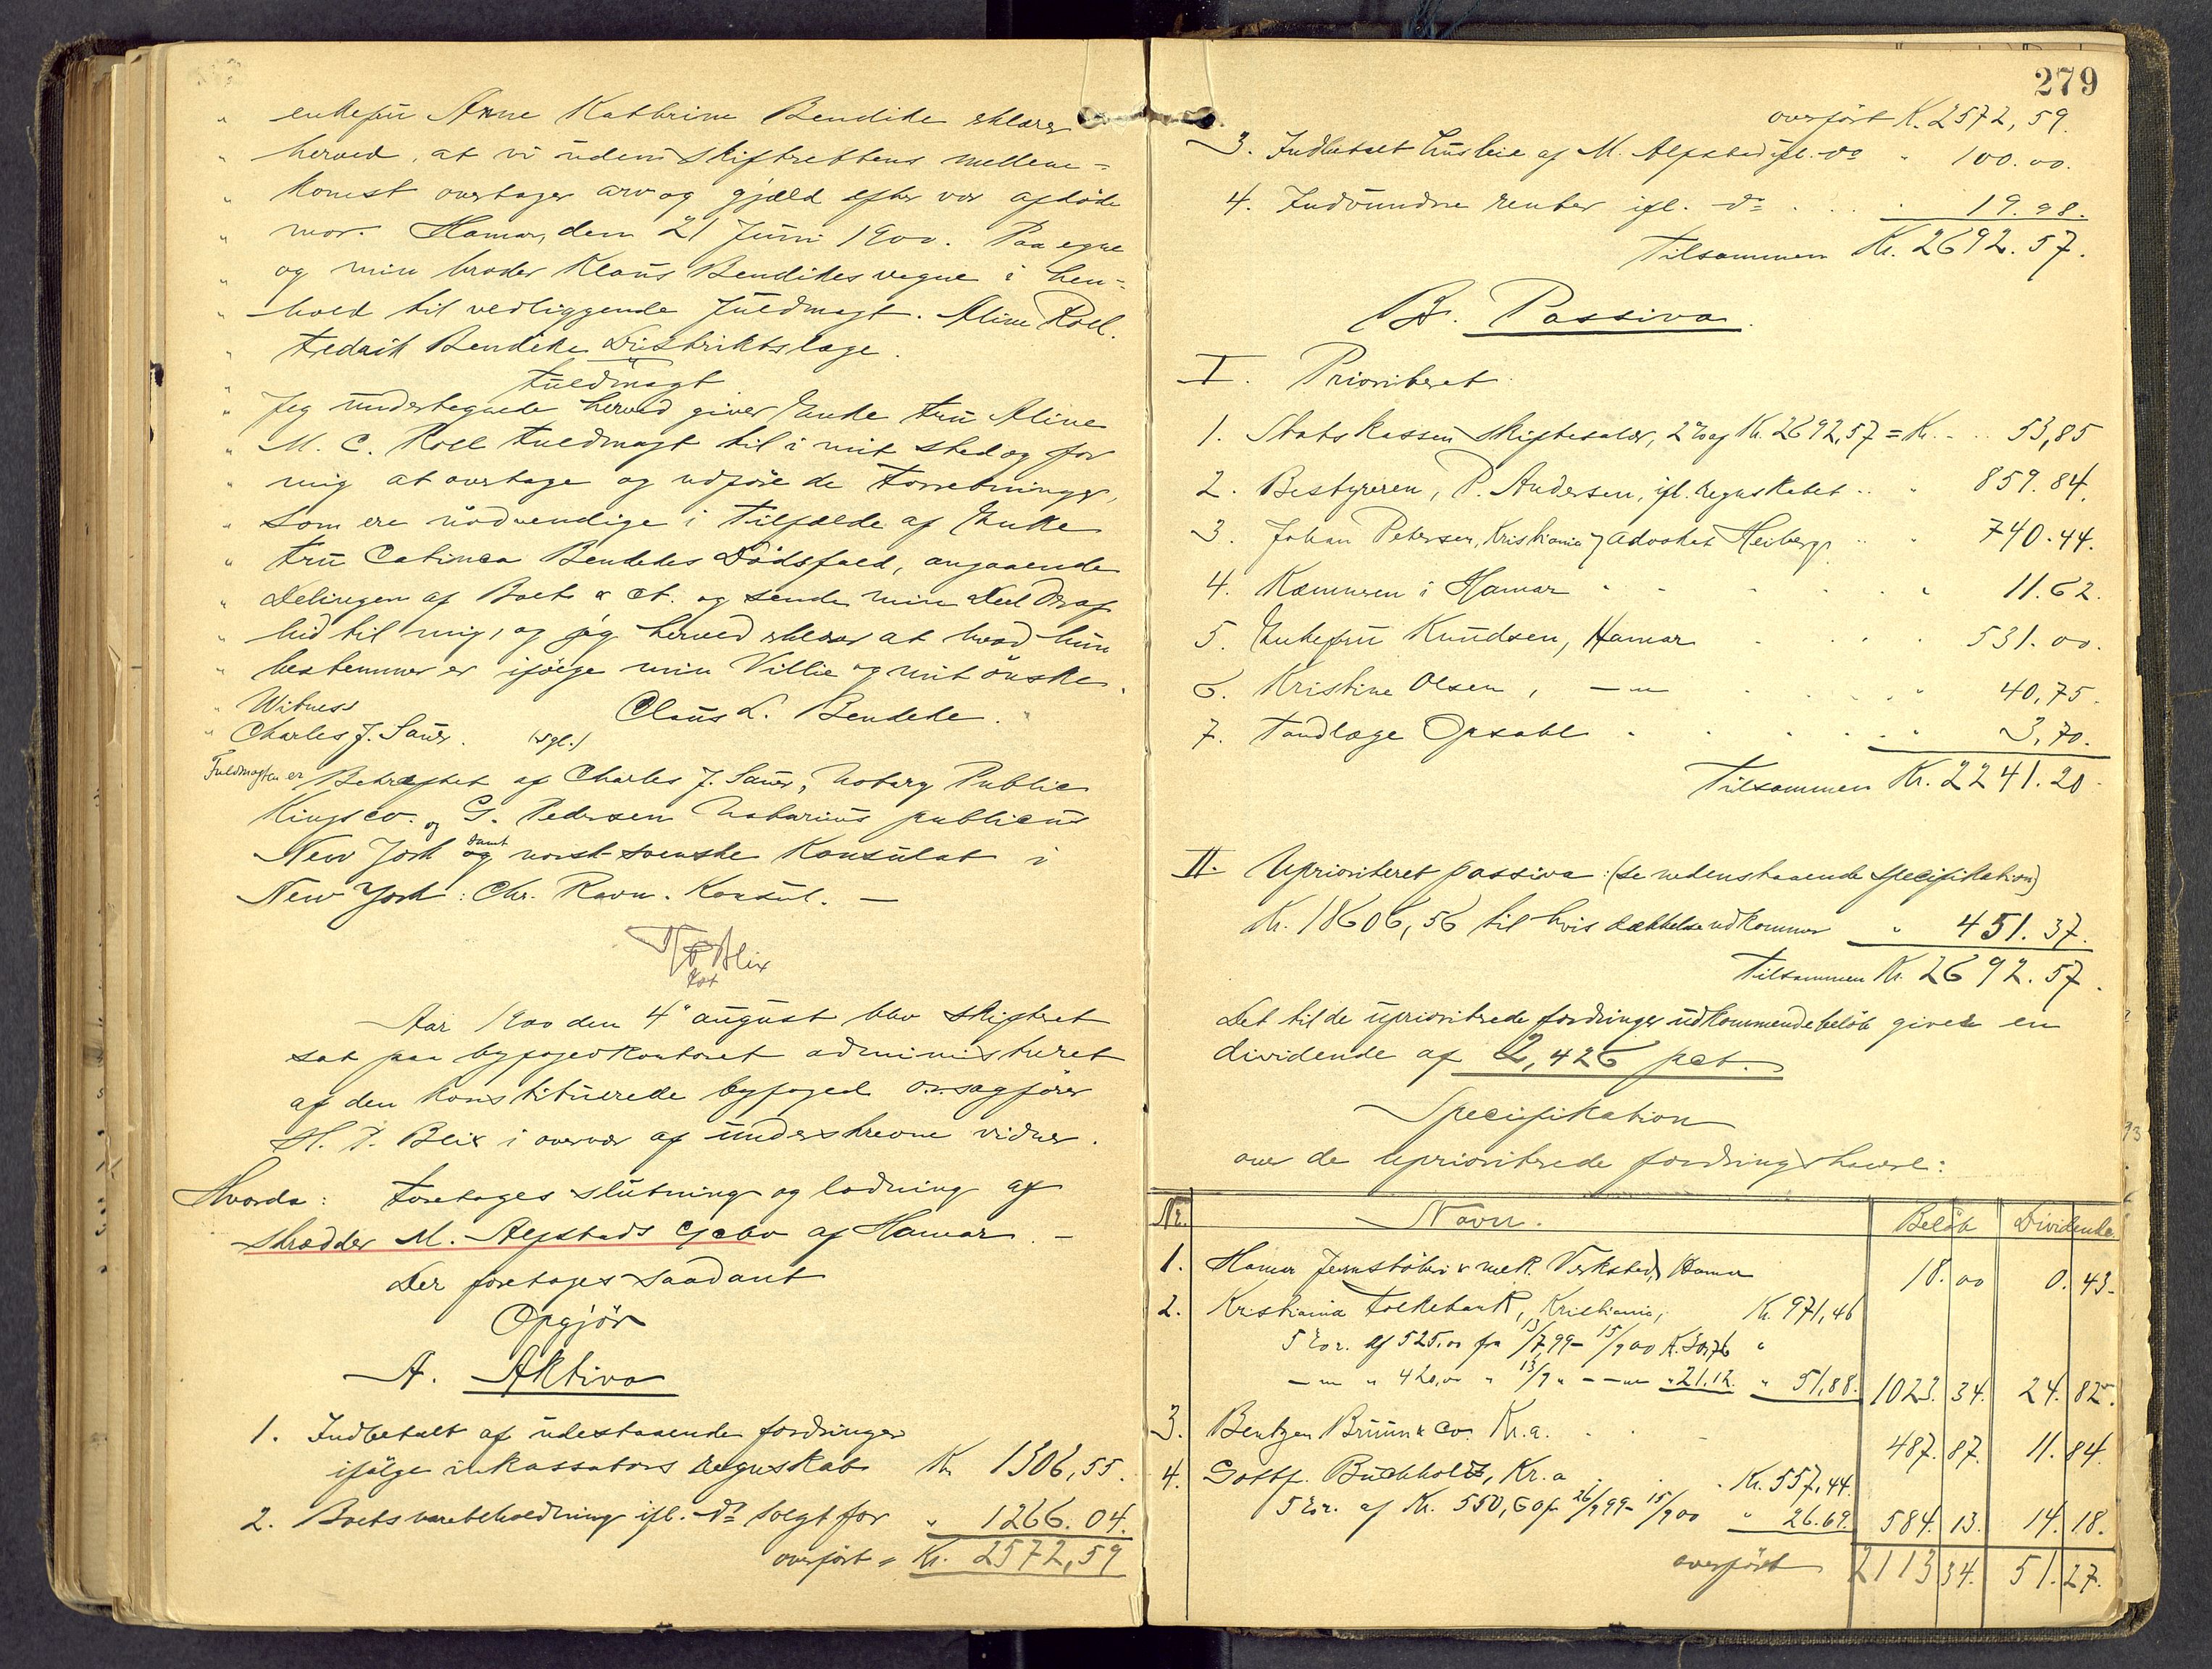 " enkefru Anne Kathrine Bendike erklærer
" herved, at vi uden Skifterettens mellem-
" komst overtager arv og gjæld efter vor afdøde
" mor. Hamar, den 21 Juni 1900. Paa egne
" og min broder Klaus Bendikes vegne i hen-
" hold til vedliggende Fuldmagt. Aline Roll.
" Fredrik Bendeke Distriktslæge.
" Fuldmagt
" Jeg undertegnede herved giver Enke Fru Aline
" M. C. Roll Fuldmagt til i mit sted og for
" mig at overtage og udføre de Forretninger,
" som ere nødvendige i Tilfælde af Enke
" Fru Catinca Bendekes Dødsfald, angaaende
" Delingen af Boet & ct. og sende min Deel deraf
" hid til mig, og jeg herved erklærer at hvad hun
" bestemmer er ifølge min Villie og mit ønske.
" Witness Claus L. Bendeke. "
" Charles J. Sauer. (sgl.)
Fuldmagten er Bekræftet af Charles J. Sauer, Notary Public
Kings co. og G. Pedersen Notarius publicus
New York samt og norsk-svenske Konsulat i
New York: Chr. Ravn. Konsul. —
H P Blix
kst
Aar 1900 den 4 august blev skifteret
sat paa byfogedkontoret administreret
af den konstituerede byfoged o.r.sagfører
H. P. Blix i overvær af underskrevne vidner.
Hvorda: Foretages slutning og lodning af
skrædder M. Alfstads gjebo af Hamar. —
Der foretages saadant
Opgjør
A. Aktiva
1. Indbetalt af udestaaende fordringer
ifølge inkassators regnskab Kr 1306,55.
2. Boets varebeholdning ifl. do solgt for " 1266.04.
overført = Kr. 2572,59
279
overført K. 2572,59.
3. Indbetalt husleie af M. Alfstad ifl. do " 100.00.
4. Indvundne renter ifl. do . . . 19.98.
Tilsammen Kr. 2692.57.
B. Passiva.
I. Prioriteret.
1. Statskassen skiftesalær, 2 % af Kr. 2692,57 = Kr. .. 53,85
2. Bestyreren, P. Andersen, ifl. regnskabet .. " 859.84.
3. Johan Petersen, Kristiania, Advokat Heiberg .. " 740.44.
4. Kæmneren i Hamar " 11.62.
5. Enkefru Knudsen, Hamar 531.00.
6. Kristine Olsen, — " — 40,75.
7. Tandlæge Opsahl 3,70.
Tilsammen Kr. 2241.20.
II. Uprioriteret passiva: (se nedenstaaende Specifikation)
Kr. 18606,56 til hvis dækkelse udkommer " 451.37.
Tilsammen Kr. 2692.57.
Det til de uprioriterede fordringer udkommende beløb giver en
dividende af 2,426 pct.
Specifikation
over de uprioriterede fordringshavere:
Nr. Navn. Beløb Dividende
1. Hamar Jernstøberi & mek. Verksted, Hamar 18.00 0.43.
2. Kristiania Folkebank, Kristiania, Kr. 971,46
5 % r. af 525.00 fra 13/7 99 – 15/9 00 K. 30,76 "
— " — " 420,00 " 13/9 " — " — " 21.12. " 51,88. 1023.34. 24.82.
3. Bentzen Bruun & Co. Kr.a. 487.87. 11.84.
4. Gottf. Buchholtz, Kr.a . . Kr. 557,44.
5 % r. af Kr. 550,60 fr 26/9 99 – 15/9 00 " 26.69. 584.13. 14.18.
overført 2113 34. 51.27.